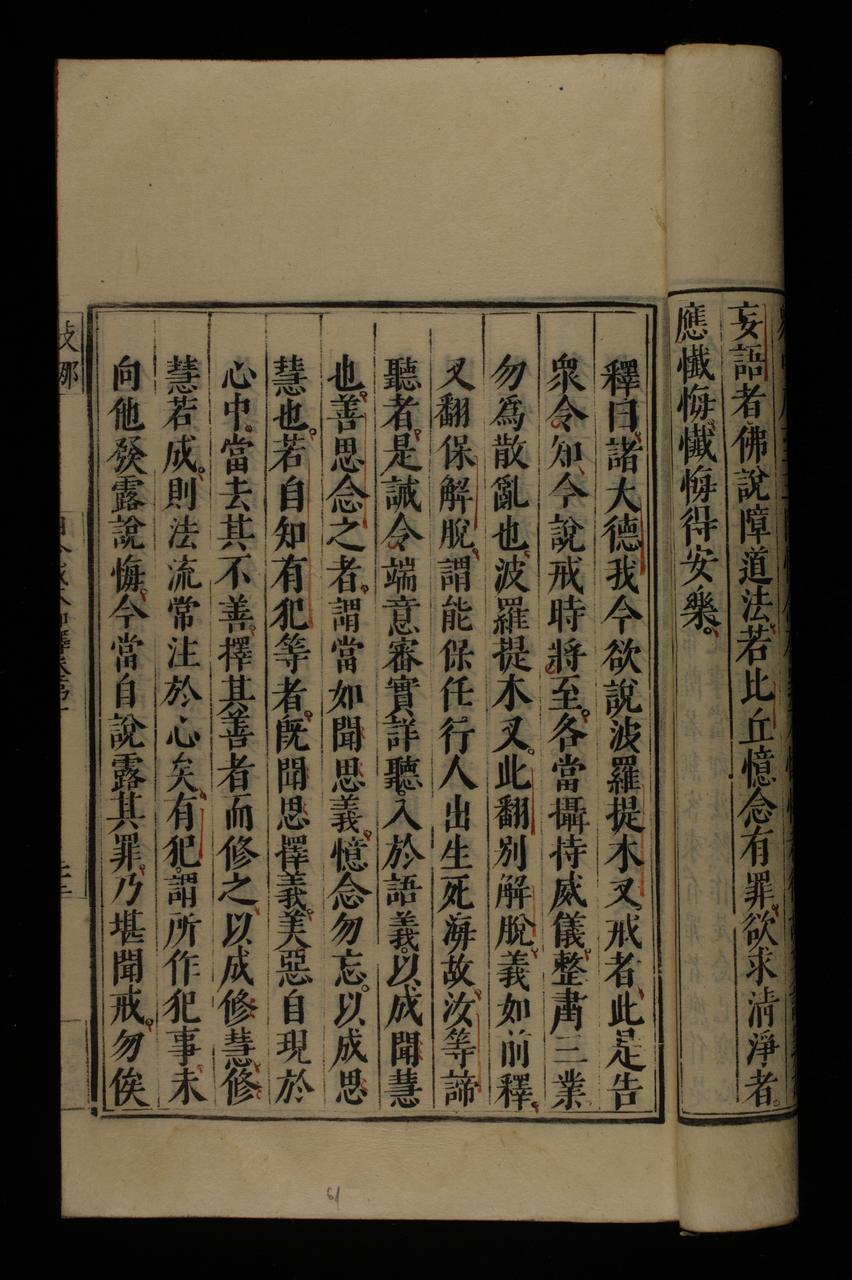 妄語者佛說障道法若比丘憶念有罪欲求清淨者
應懺悔懺悔得安樂
釋曰諸大德我今欲說波羅提木叉戒者此是告
衆令知今說戒時將至各當攝持威儀整肅三業
勿爲散亂也波羅提木叉此翻別解脫義如前釋
又翻保解脫謂能保任行人出生死海故汝等諦
聽者是誡令端意審實詳聽入於語義以成聞慧
也善思念之者謂當如聞思義憶念勿忘以成思
慧也若自知有犯等者旣聞思擇義美惡自現於
心中當去其不善擇其善者而修之以成修慧修
慧若成則法流常注於心矣有犯謂所作犯事未
向他發露說悔今當自說露其罪乃堪聞戒勿俟
61